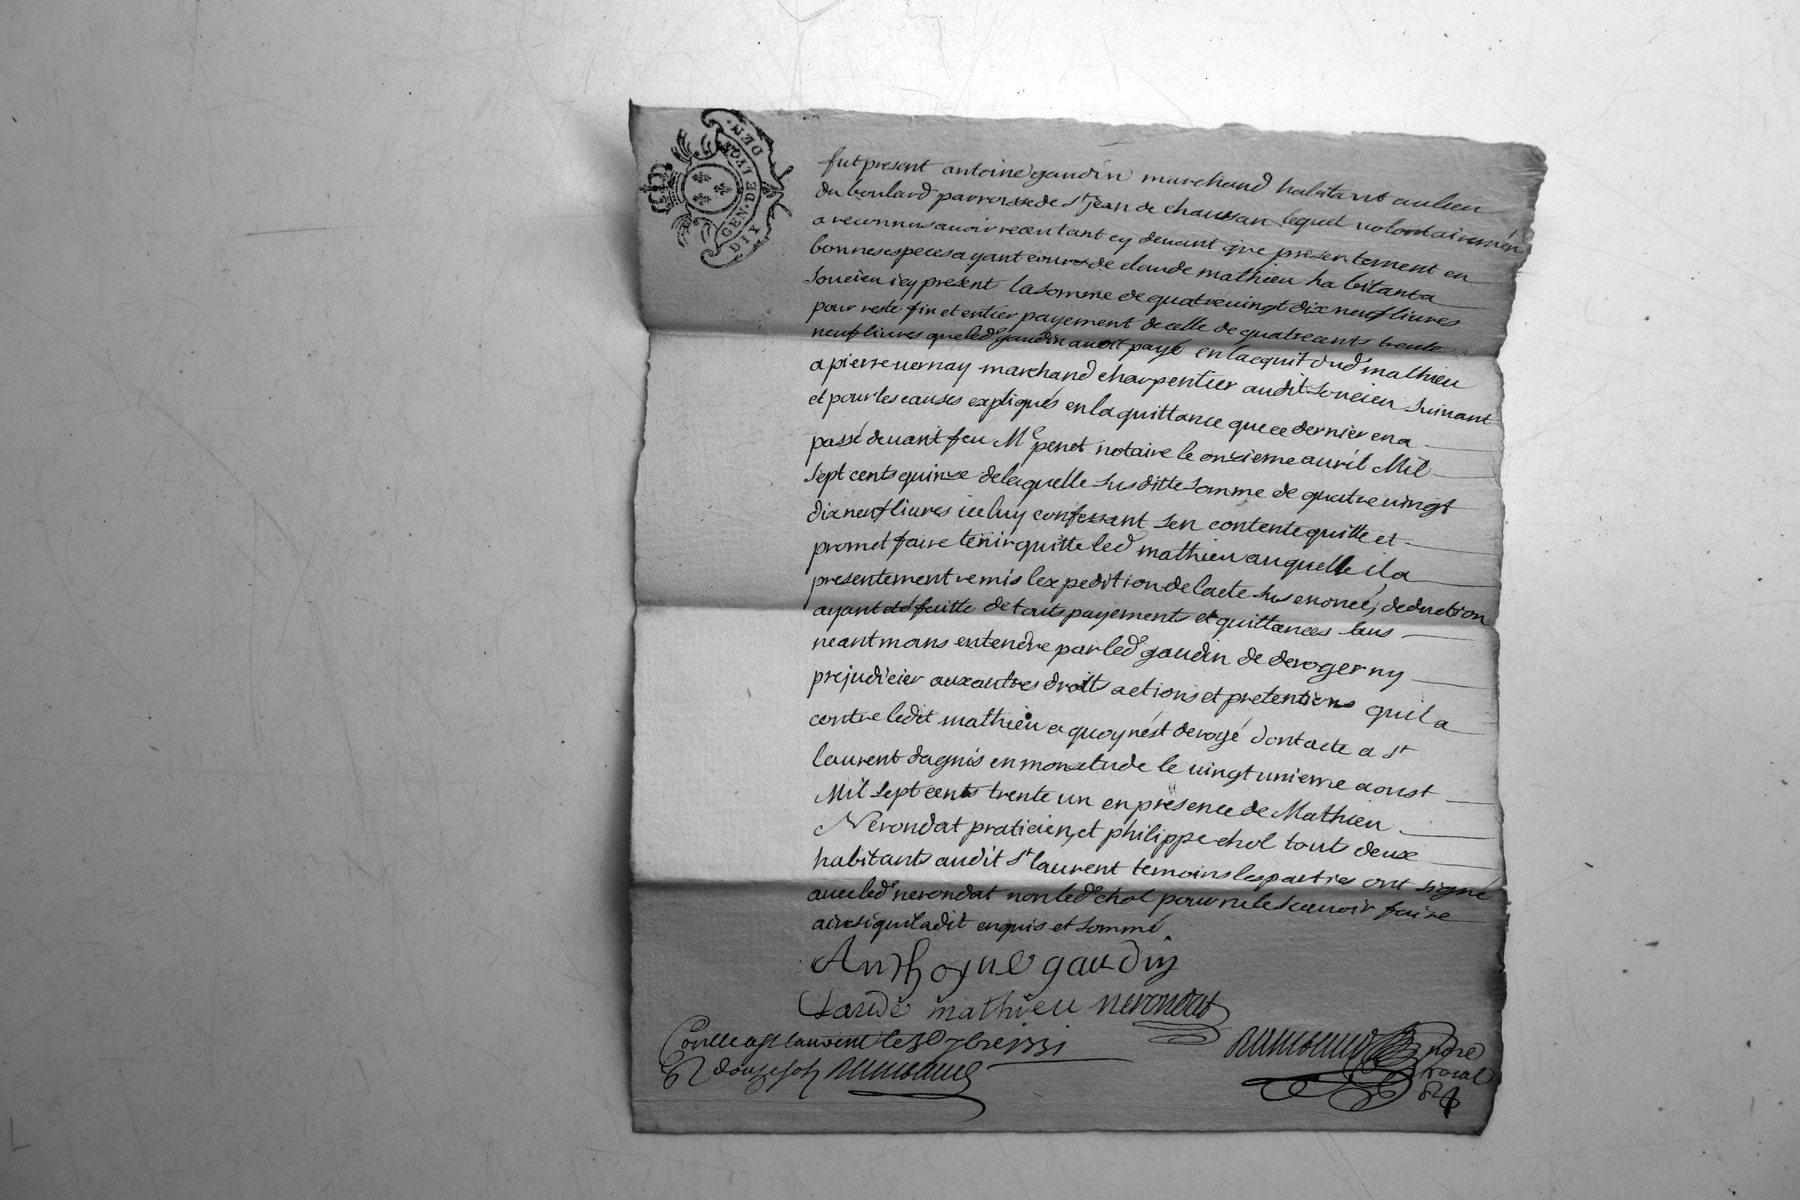 GEN. DE LYON DIX DEN.
fut present antoine gaudin marchand habitant au lieu
du boulard parroisse de st jean de chaussan lequel volontairemen
a reconnu avoir receu tant cy devant que presentement en
bonnes especes ayant cours de claude mathieu habitant a
Soucieu icy present la somme de quatre vingt dix neuf livres
pour reste fin et entier payement de celle de quatre cents trente
neuf livres que led gaudin auoit payé en lacquit dud mathieu
a pierre vernay marchand charpentier audit Soucieu suivant
et pour les causes expliqués en la quittance que ce dernier en a
passé devant feu Me penet notaire le onzieme avril Mil
Sept cents quinze de laquelle susditte somme de quatre vingt
dix neuf livres iceluy confessant sen contente quitte et
promet faire tenir quitte led mathieu auquelle il a
presentement remis lexpedition de lacte sus enoncé, deduction
ayant eté faitte de touts payements et quittances sans
neantmoins entendre par led gaudin de deroger ny
prejudicier aux autres droits actions et pretentions quil a
contre ledit mathieu a quoy nést derogé dont acte a st
laurent dagnis en mon etude le vingt unieme aoust
Mil Sept cents trente un en presence de Mathieu
Nerondat praticien, et philippe chol touts deux
habitants audit st laurent temoins les parties ont signé
avec led nerondat non led chol pour ne le scavoir faire
ainsi quil a dit enquis et sommé.
Anthoyne gaudin
Claude mathieu nerondat
Conlle a st laurent le 3e 7bre 1731
R douze sols
notre royal